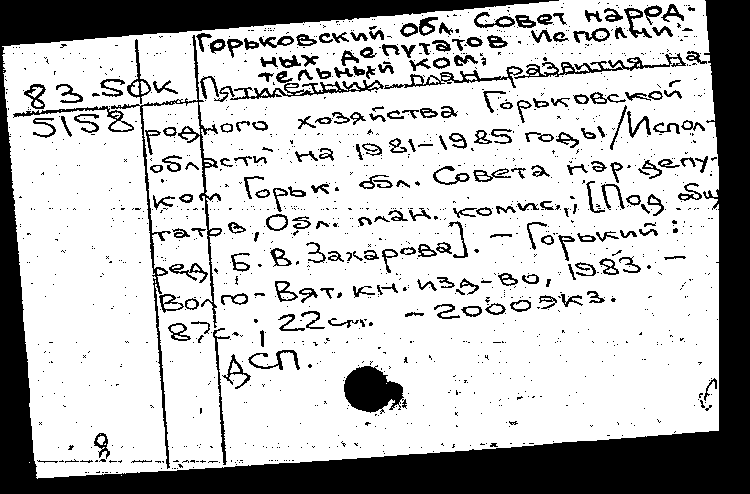 Горьковский обл. Совет народ-
ных депутатов. Исполни-
тельный ком.
83.50к Пятилетний план развития на-
5158 родного хозяйства Горьковской
области на 1981-1985 годы/Испол-
ком Горьк. обл. Совета нар. депу-
татов, Обл. план. комис.; [Под общ
ред. Б. В. Захарова]. - Горький:
Волго-Вят. кн. изд-во, 1983. -
87с.; 22см. - 2000экз.
ДСП.
8